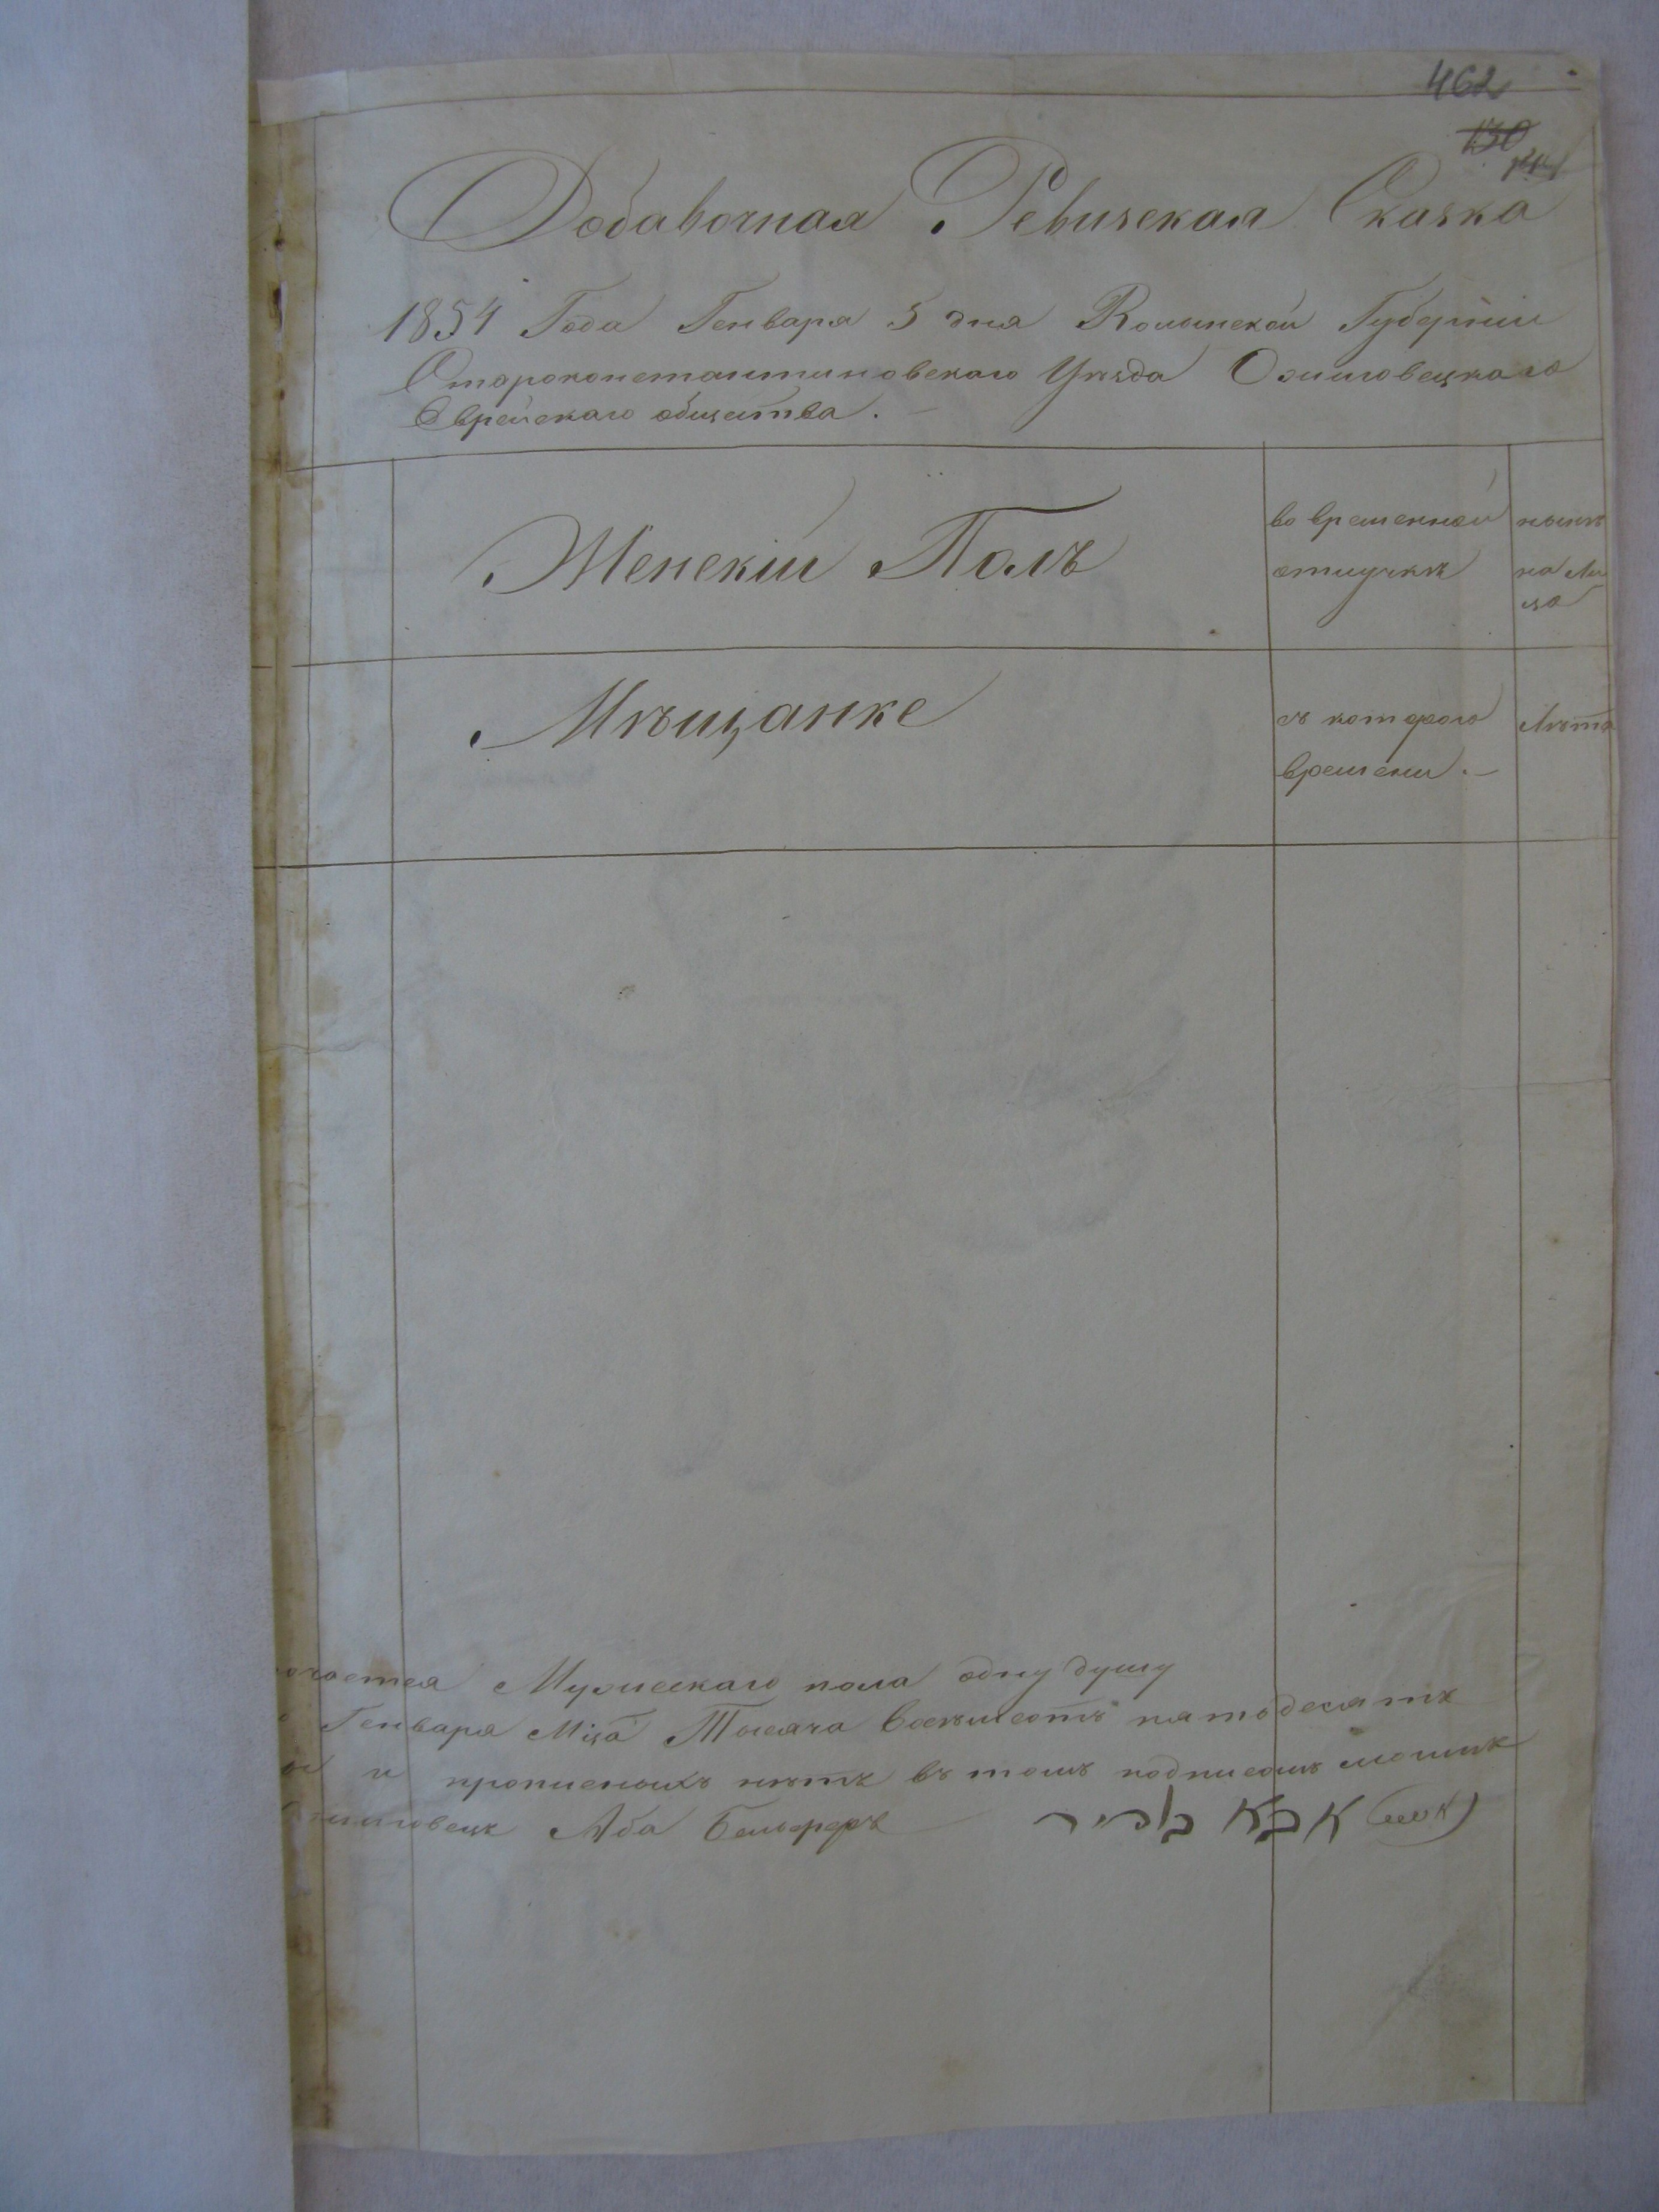 462
130
144
Добавочная Ревизская Сказка
1854 Года Генваря 5 дня Волынской Губернии
Староконстантиновскаго Уѣзда Ожиговецкаго
Еврейскаго общества.
Женскій Полъ
во временной
отлучкѣ
нынѣ
на Ли
цо
Мѣщанке
съ котораго
времени.
Лѣта
Мужескаго пола одну душу
Генваря Мца Тысяча восемьсотъ пятодесятъ
и прописныхъ нѣтъ въ томъ подписомъ
Аба
אבא